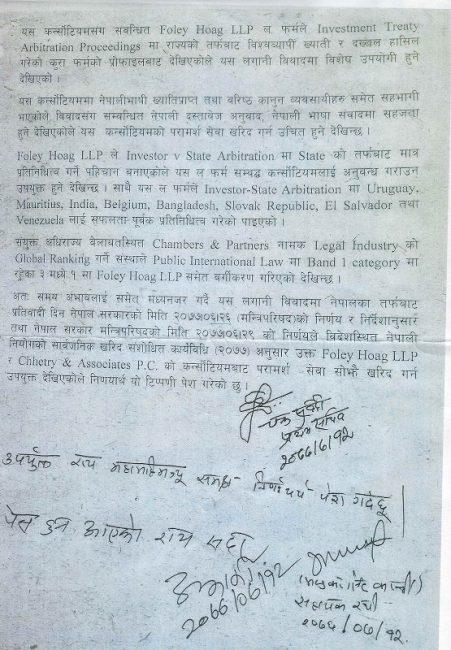 यस कन्सोर्टियमसंग सबन्धित Foley Hoag LLP ल फर्मले Investment Treaty
Arbitration Proceedings मा राज्यको तर्फबाट विश्वव्यापी ख्याती र दख्खल हासिल
गरेको कुरा फर्मको प्रोफाइलबाट देखिएकोले यस लगानी विवादमा विशेष उपयोगी हुने
देखिएको ।
यस कन्सोर्टियममा नेपालीभाषी ख्यातिप्राप्त तथा वरिष्ठ कानून व्यवसायीहरु समेत सहभागी
भाएकोले विवादसंग सम्वन्धित नेपाली दस्तावेज अनुवाद, नेपाली भाषा संवादमा सहजता
हुने देखिएकोले यस कन्सोर्टियमको परामर्श सेवा खरिद गर्न उचित हुने देखिन्छ ।
Foley Hoag LLP ले Investor v State Arbitration मा State को तर्फबाट मात्र
प्रतिनिधित्व गर्ने पहिचान बनाएकोले यस ल फर्म सम्बद्ध कन्सोर्टियमलाई अनुबन्ध गराउन
उपयुक्त हुने देखिन्छ । साथै यस ल फर्मले Investor-State Arbitration मा Uruguay,
Mauritius, India, Belgium, Bangladesh, Slovak Republic, El Salvador तथा
Venezuela लाई सफलता पूर्वक प्रतिनिधित्व गरेको पाइएको ।
संयुक्त अधिराज्य बेलायतस्थित Chambers & Partners नामक Legal Industry को
Global Ranking गर्ने संस्थाले Public International Law मा Band 1 category मा
रहेका ३ मध्ये १ मा Foley Hoag LLP समेत वर्गीकरण गरिएको देखिन्छ ।
अतः समय अभावलाई समेत मध्यनजर गर्दै यस लगानी विवादमा नेपालका तर्फबाट
प्रतिवादी दिन नेपाल सरकारको मिति २०७७०६।२६ (मन्त्रिपरिषद)को निर्णय र निर्देशानुसार
तथा नेपाल सरकार मन्त्रिपरिषदको मिति २०७७०६।२६ को निर्णयले विदेशस्थित नेपाली
नियोगको सार्वजनिक खरिद संशोधित कार्यविधि (२०७७) अनुसार उक्त Foley Hoag LLP
र Chhetry & Associates P.C. को कन्सोर्टियमबाट परामर्श -सेवा सोझै खरिद गर्न
उपयुक्त देखिएकोले निणयार्थ यो टिप्पणी पेश गरेको छु ।
उपर्युक्त राय समक्ष निर्णयार्थ पेश गर्दछु
पेस हुन आएको राय सदर